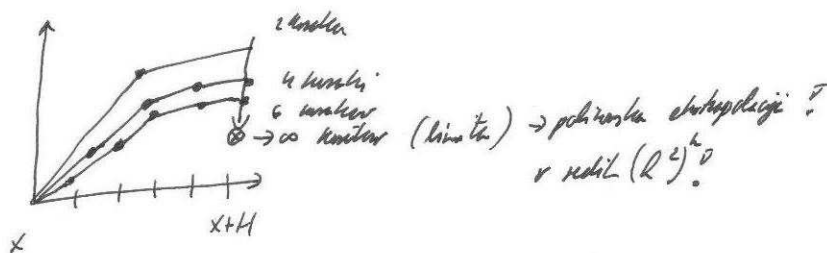 2 koraka
4 koraki
6 korakov
→ ∞ korakov (limita) → polinomska ekstrapolacija !
v redih (h²)ⁿ !
x
x+H